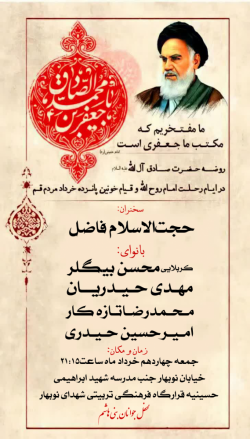 جعفر بن محمد الصادق
ما مفتخریم که
مکتب ما جعفری است
روضه حضرت صادق آل الله
در ایام رحلت امام روح الله و قیام خونین پانزده خرداد مردم قم
سخنران:
حجتالاسلام فاضل
بانوای:
کربلایی محسن بیگلر
مهدی حیدریان
محمدرضا تازه کار
امیرحسین حیدری
زمان و مکان:
جمعه چهاردهم خرداد ماه ساعت ۲۱:۱۵
خیابان نوبهار جنب مدرسه شهید ابراهیمی
حسینیه قرارگاه فرهنگی تربیتی شهدای نوبهار
محفل جوانان بنی هاشم